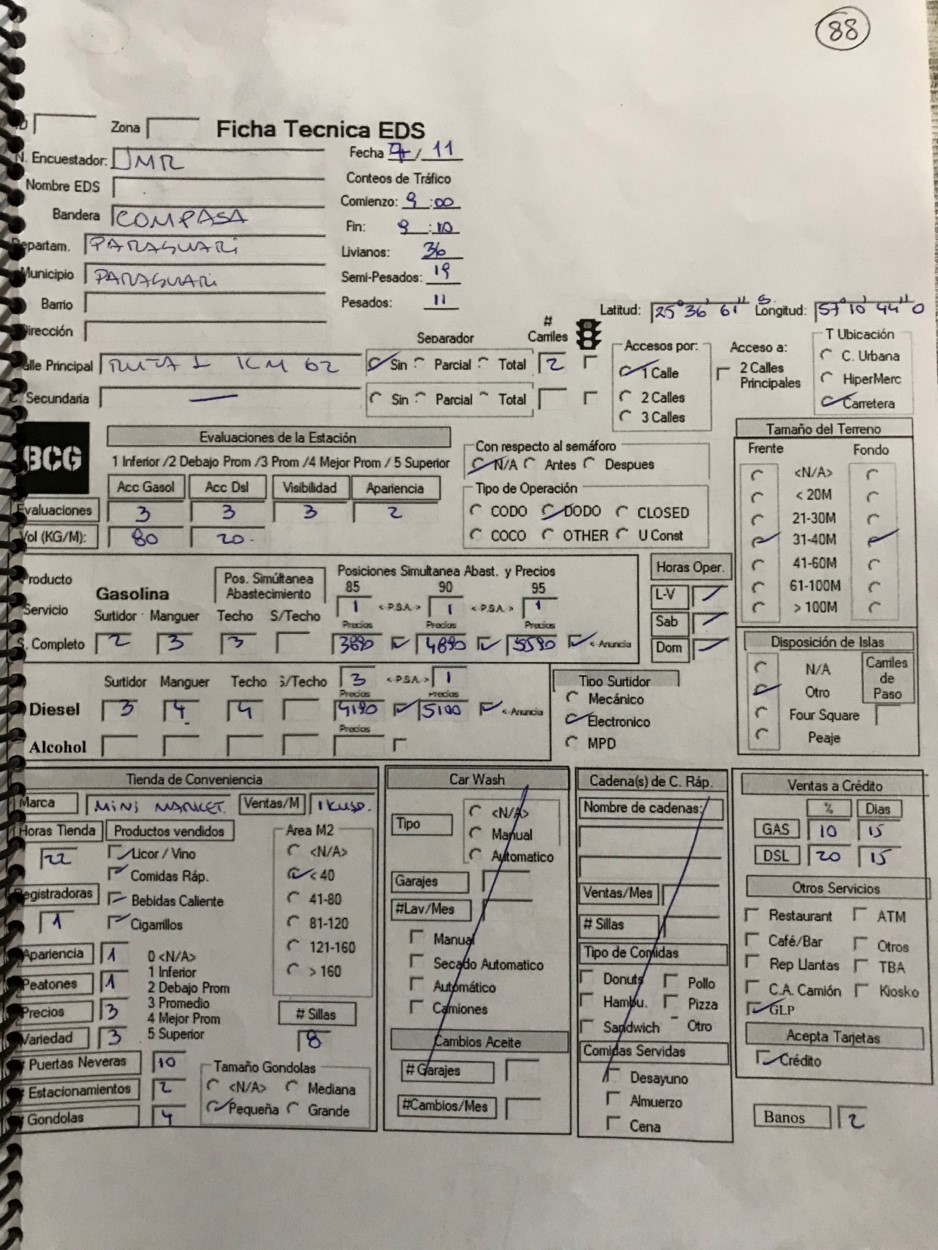 88
Zona Ficha Tecnica EDS
N. Encuestador: JMR Fecha 7/11
Nombre EDS Conteos de Tráfico
Bandera COMPASA Comienzo: 9:00
Departam. PARAGUARI Fin: 9:10
Municipio PARAGUARI Livianos: 36
Barrio Semi-Pesados: 19
Dirección Pesados: 11
Latitud: 25° 36' 61" S. Longitud: 57° 10' 44" O
Calle Principal RUTA 1 KM 62 Separador Sin Parcial Total # Carriles 2
C. Secundaria — Sin Parcial Total
Accesos por:
1 Calle
2 Calles
3 Calles
Acceso a:
2 Calles
Principales
T Ubicación
C. Urbana
HiperMerc
Carretera
BCG
Evaluaciones de la Estación
1 Inferior /2 Debajo Prom /3 Prom /4 Mejor Prom / 5 Superior
Acc Gasol Acc Dsl Visibilidad Apariencia
Evaluaciones 3 3 3 2
Vol (KG/M): 80 20.
Con respecto al semáforo
N/A Antes Despues
Tipo de Operación
CODO DODO CLOSED
COCO OTHER U Const
Tamaño del Terreno
Frente Fondo
<N/A>
< 20M
21-30M
31-40M
41-60M
61-100M
> 100M
Producto Gasolina Pos. Simúltanea Abastecimiento Posiciones Simultanea Abast. y Precios
85 90 95
Servicio 1 <-P.S.A.-> 1 <-P.S.A.-> 1
Surtidor Manguer Techo S/Techo Precios Precios Precios
S. Completo 2 3 3 3690 4890 5590 <-Anuncia
Horas Oper.
L-V
Sab
Dom
Surtidor Manguer Techo S/Techo 3 <-P.S.A.-> 1
Precios Precios
Diesel 3 4 4 4190 5100 <-Anuncia
Precios
Alcohol
Tipo Surtidor
Mecánico
Electronico
MPD
Disposición de Islas
N/A
Otro
Four Square
Peaje
Carriles de Paso
Tienda de Conveniencia
Marca MINI MARKET. Ventas/M 1KUSD.
Horas Tienda Productos vendidos
22 Licor / Vino
Comidas Ráp.
Registradoras Bebidas Caliente
1 Cigarrillos
Area M2
<N/A>
< 40
41-80
81-120
121-160
> 160
Apariencia 1 0 <N/A>
1 Inferior
Peatones 1 2 Debajo Prom
Precios 3 3 Promedio
4 Mejor Prom
Variedad 3 5 Superior
# Sillas
8
# Puertas Neveras 10
# Estacionamientos 2
# Gondolas 4
Tamaño Gondolas
<N/A> Mediana
Pequeña Grande
Car Wash
Tipo
<N/A>
Manual
Automatico
Garajes
#Lav/Mes
Manual
Secado Automatico
Automático
Camiones
Cambios Aceite
# Garajes
#Cambios/Mes
Cadena(s) de C. Ráp.
Nombre de cadenas:
Ventas/Mes
# Sillas
Tipo de Comidas
Donuts Pollo
Hambu. Pizza
Sandwich Otro
Comidas Servidas
Desayuno
Almuerzo
Cena
Ventas a Crédito
% Dias
GAS 10 15
DSL 20 15
Otros Servicios
Restaurant ATM
Café/Bar Otros
Rep Llantas TBA
C.A. Camión Kiosko
GLP
Acepta Tarjetas
Crédito
Banos 2